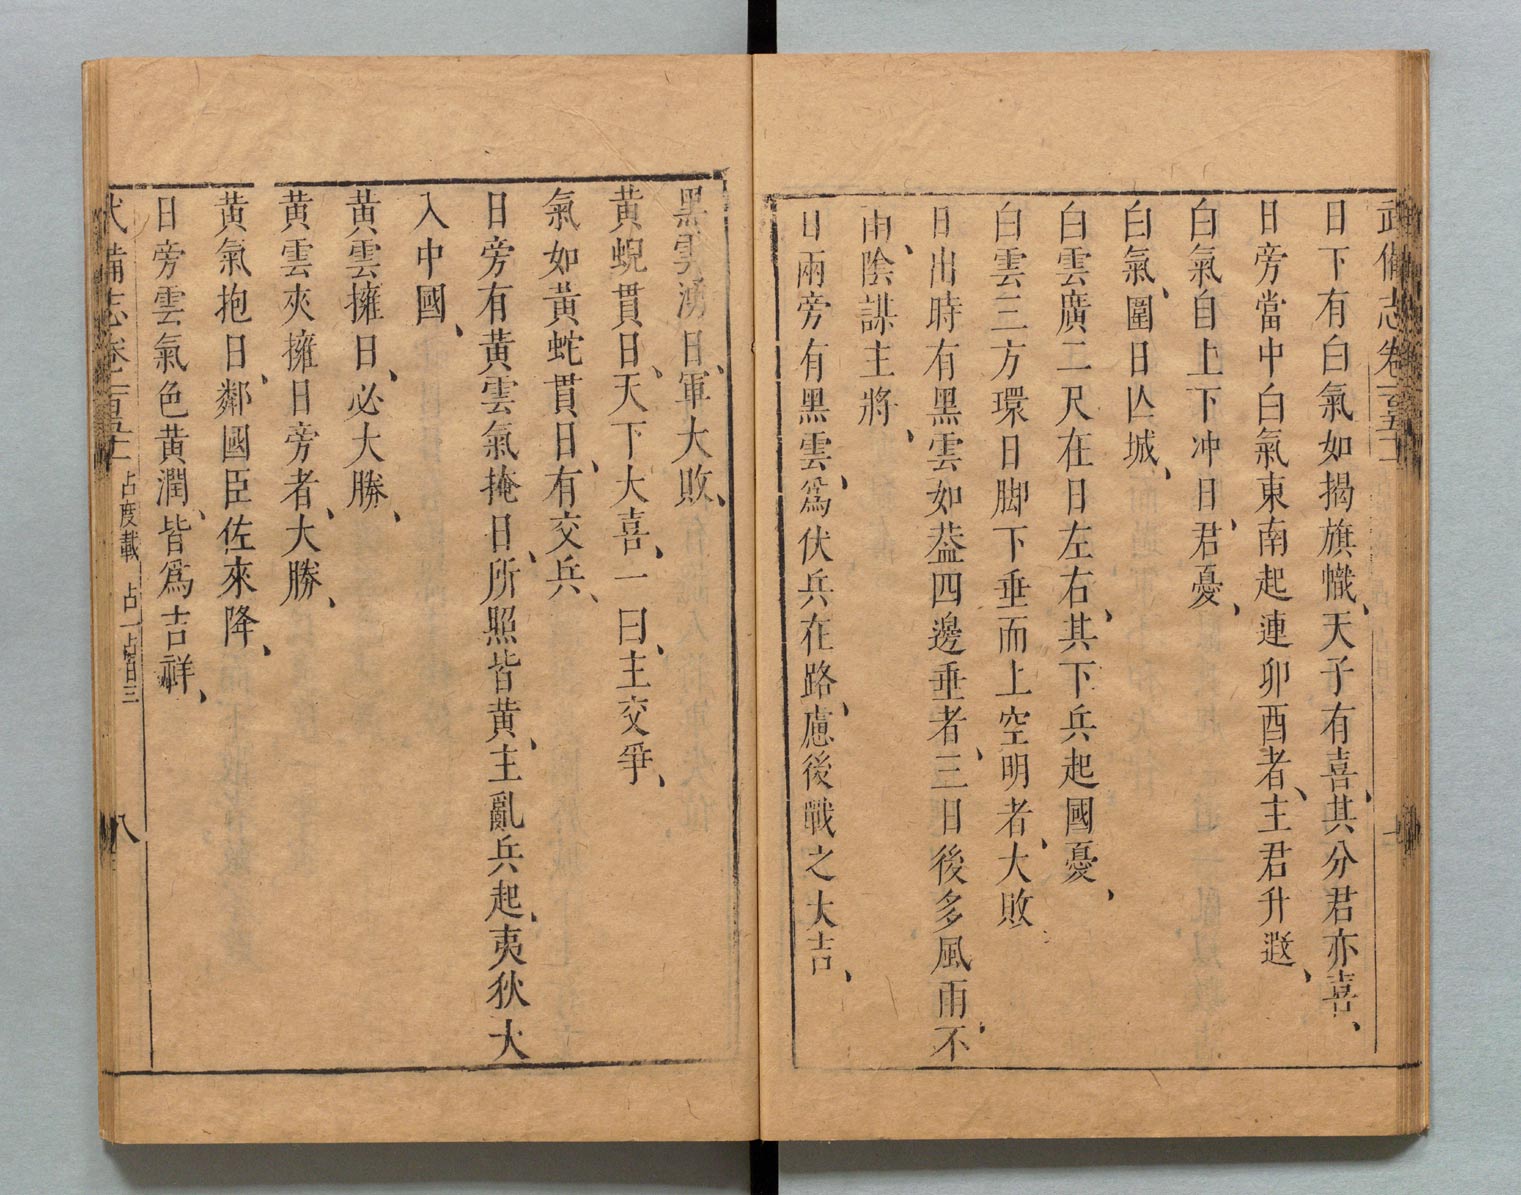 武備志卷一百五十一
日下有白氣如揭旗幟、天子有喜、其分君亦喜、
日旁當中白氣東南起連卯酉者、主君升遐、
白氣自上下冲日、君憂、
白氣、圍日亾城、
白雲廣二尺在日左右、其下兵起國憂、
白雲三方環日脚下垂而上空明者、大敗
日出時有黑雲如葢四邊垂者、三日後多風雨不
雨、陰謀主將、
日兩旁有黑雲、爲伏兵在路、慮後戰之大吉、
黑雲湧日、軍大敗、
黃蜺貫日、天下大喜、一曰、主交爭、
氣如黃蛇貫日、有交兵、
日旁有黃雲氣掩日、所照皆黄、主亂兵起、夷狄大
入中國、
黃雲擁日、必大勝、
黃雲夾擁日旁者、大勝、
黃氣抱日、鄰國臣佐來降、
日旁雲氣色黄潤、皆爲吉祥、
武備志卷一百五十一 占度載 占一占日三 八